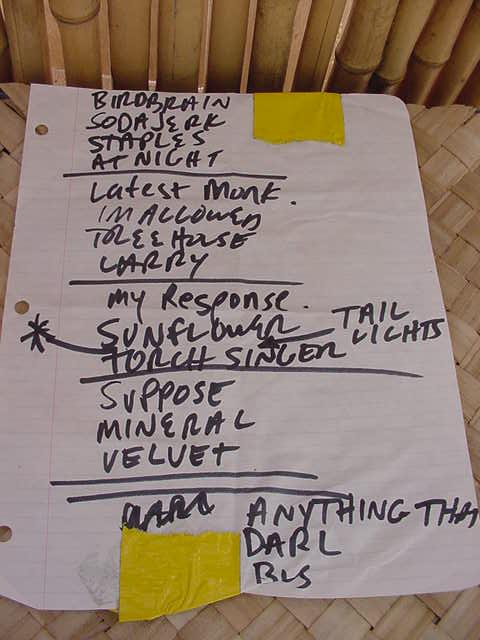 BIRDBRAIN
SODAJERK
STAPLES
AT NIGHT
Latest Monk.
I'M ALLOWED
TREEHOUSE
LARRY
My Response.
SUNFLOWER
TAIL LIGHTS
* TORCH SINGER
SUPPOSE
MINERAL
VELVET
DARL
ANYTHING THA
DARL
BLS